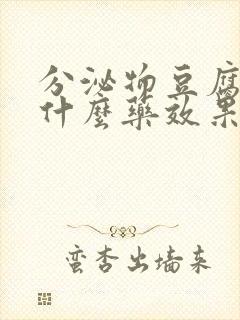 分泌物豆腐
什麼藥效果
蛮杏出墙来